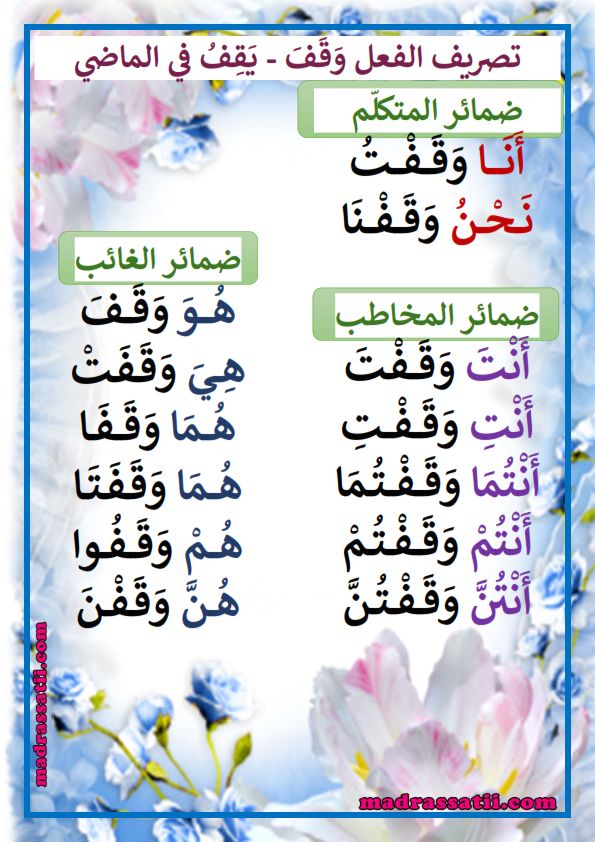 تصريف الفعل وَقَفَ - يَقِفُ في الماضي
ضمائر المتكلّم
أَنَــا وَقَـفْـتُ
نَـحْـنُ وَقَـفْـنَا
ضمائر المخاطب
أَنْتَ وَقَـفْـتَ
أَنْتِ وَقَـفْـتِ
أَنْتُمَا وَقَـفْـتُمَا
أَنْتُمْ وَقَـفْـتُمْ
أَنْتُنَّ وَقَـفْتُـنَّ
ضمائر الغائب
هُـوَ وَقَـفَ
هِيَ وَقَفَتْ
هُـمَا وَقَـفَا
هُـمَا وَقَفَتَا
هُـمْ وَقَـفُـوا
هُـنَّ وَقَفْنَ
madrassatii.com
madrassatii.com